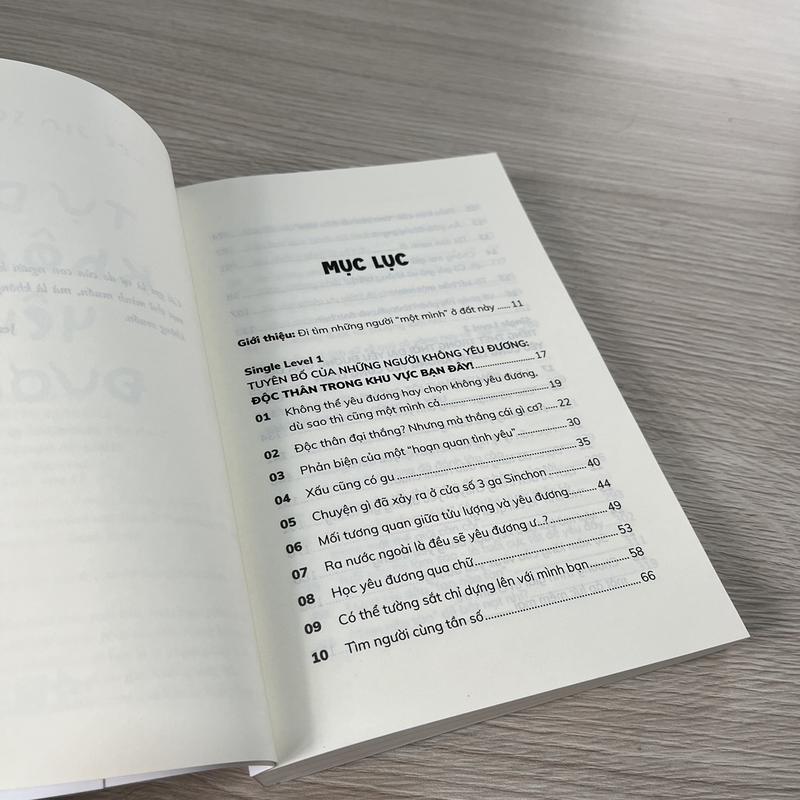 MỤC LỤC
Giới thiệu: Đi tìm những người “một mình” ở đất này ...... 11
Single Level 1
TUYÊN BỐ CỦA NHỮNG NGƯỜI KHÔNG YÊU ĐƯƠNG:
ĐỘC THÂN TRONG KHU VỰC BẠN ĐÂY!..................17
01 Không thể yêu đương hay chọn không yêu đương,
dù sao thì cũng một mình cả..............................19
02 Độc thân đại thắng? Nhưng mà thắng cái gì cơ? .....22
03 Phản biện của một “hoạn quan tình yêu”..............30
04 Xấu cũng có gu..........................................35
05 Chuyện gì đã xảy ra ở cửa số 3 ga Sinchon ............40
06 Mối tương quan giữa tửu lượng và yêu đương.........44
07 Ra nước ngoài là đều sẽ yêu đương ư...?...............49
08 Học yêu đương qua chữ.................................53
09 Có thể tường sắt chỉ dựng lên với mình bạn............58
10 Tìm người cùng tần số...................................66